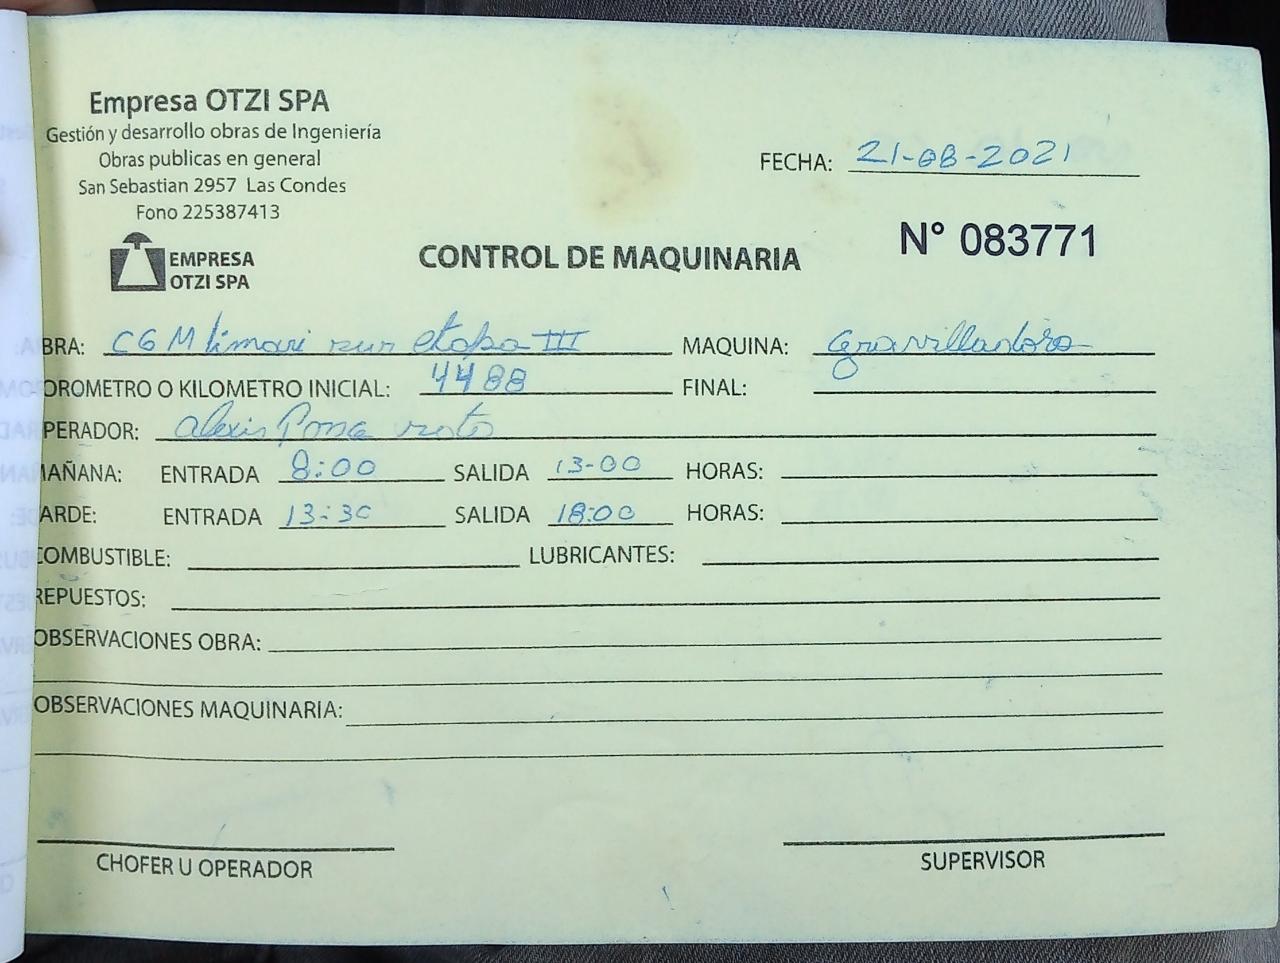 Empresa OTZI SPA
Gestión y desarrollo obras de Ingeniería
Obras publicas en general
San Sebastian 2957 Las Condes
Fono 225387413
EMPRESA
OTZI SPA
FECHA: 21-08-2021
CONTROL DE MAQUINARIA
N° 083771
BRA: CGM limari sur etapa III MAQUINA: gravilladora
OROMETRO O KILOMETRO INICIAL: 4488 FINAL:
PERADOR: alexis
MAÑANA: ENTRADA 8:00 SALIDA 13-00 HORAS:
ARDE: ENTRADA 13:30 SALIDA 18:00 HORAS:
COMBUSTIBLE: LUBRICANTES:
REPUESTOS:
OBSERVACIONES OBRA:
OBSERVACIONES MAQUINARIA:
CHOFER U OPERADOR SUPERVISOR